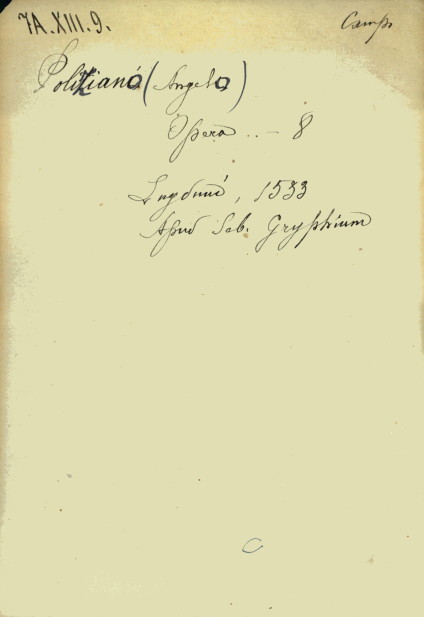 7A.XIII.9.
Camp
Poliziano (Angelo)
Opera .. - 8
Lugduni, 1533
Apud Seb. Gryphium
C